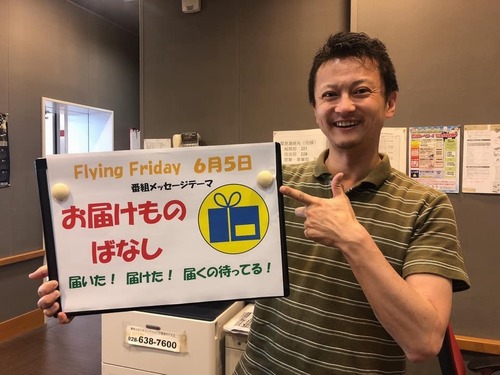 Flying Friday 6月5日
番組メッセージテーマ
お届けもの
ばなし
届いた! 届けた! 届くの待ってる!
028-638-7600